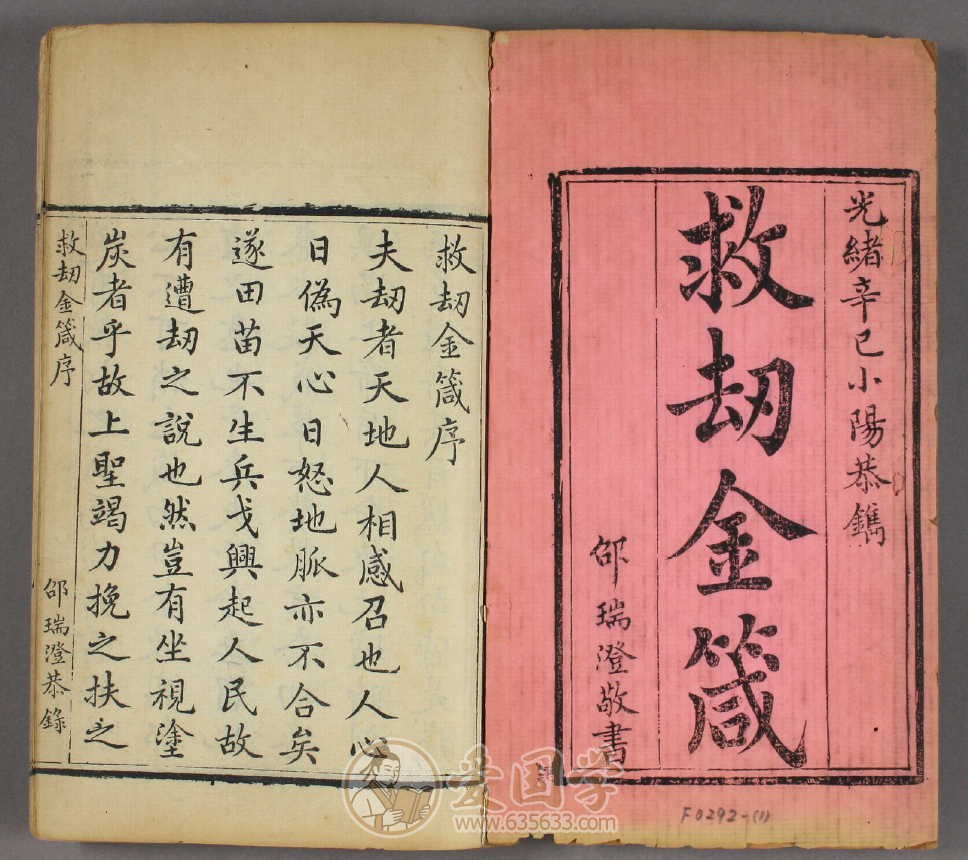 光緒辛巳小陽恭鐫
救刼金箴
邵瑞澄敬書
F0292-(1)
救刼金箴序
夫刼者天地人相感召也人心
日偽天心日怒地脈亦不合矣
遂田苗不生兵戈興起人民故
有遭刼之說也然豈有坐視塗
炭者乎故上聖竭力挽之扶之
救刼金箴序
邵瑞澄恭錄
爱国学
www.635633.com